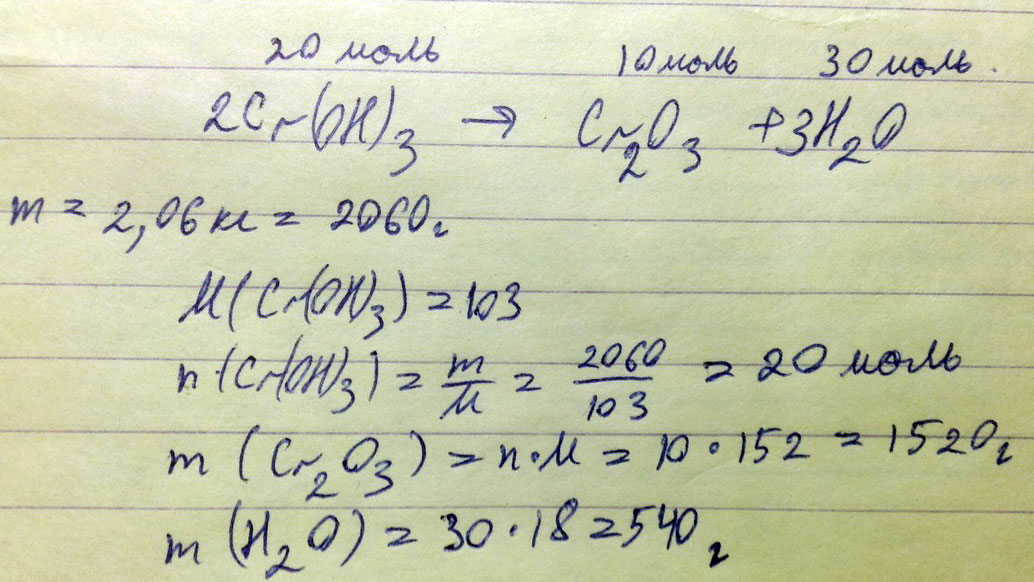 20 моль 10 моль 30 моль.
2Cr(OH)3 → Cr2O3 + 3H2O
m = 2,06 кг = 2060 г
M(Cr(OH)3) = 103
n(Cr(OH)3) = m/M = 2060/103 = 20 моль
m(Cr2O3) = n·M = 10·152 = 1520 г
m(H2O) = 30·18 = 540 г